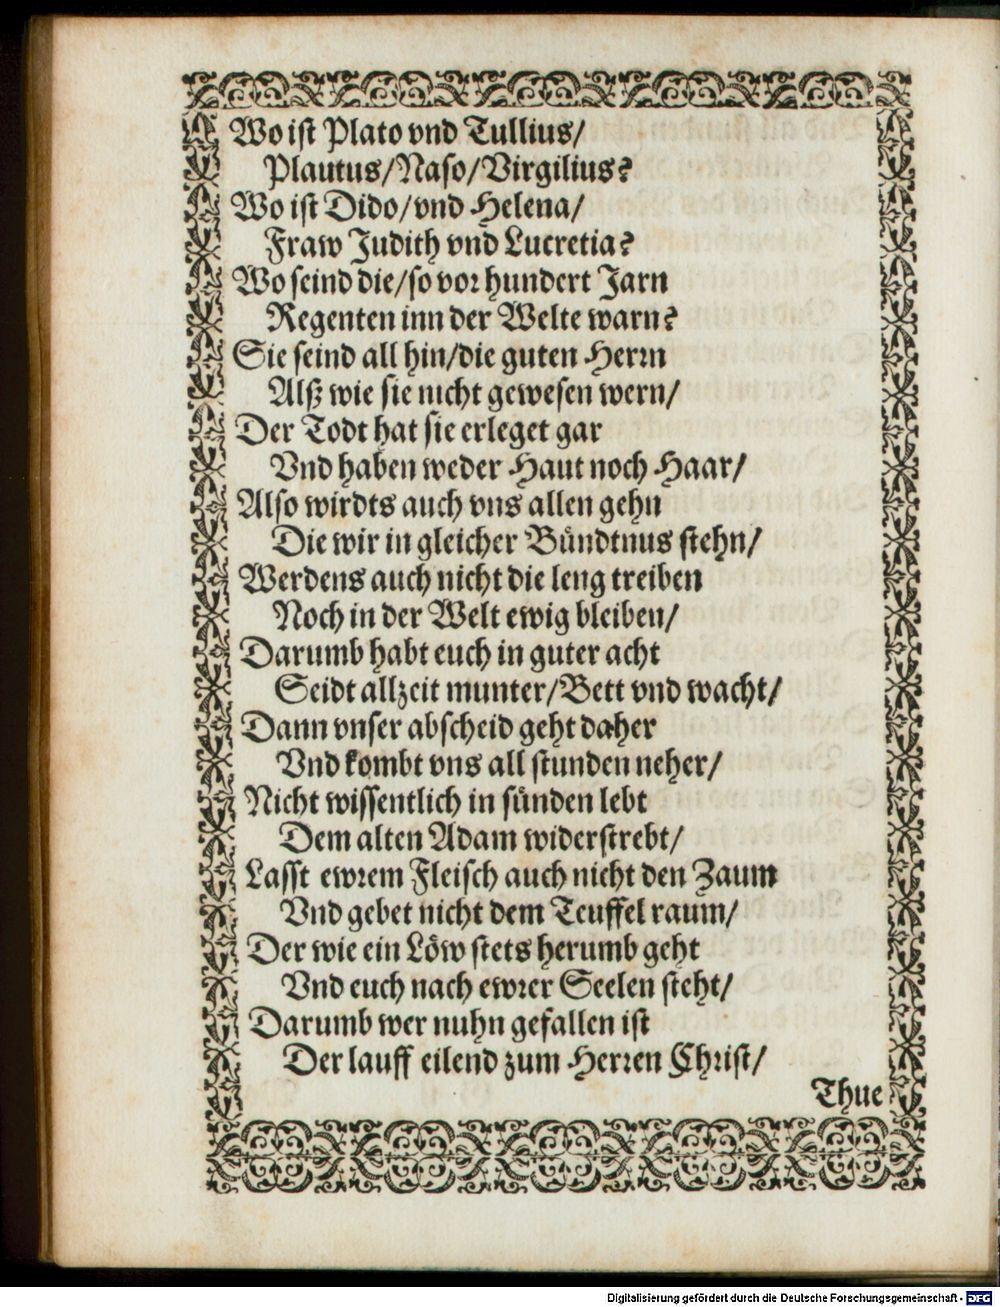 Wo ist Plato vnd Tullius/
Plautus/Naso/Virgilius?
Wo ist Dido/vnd Helena/
Fraw Judith vnd Lucretia?
Wo seind die/so vor hundert Jarn
Regenten inn der Welte warn?
Sie seind all hin/die guten Herrn
Alß wie sie nicht gewesen wern/
Der Todt hat sie erleget gar
Vnd haben weder Haut noch Haar/
Also wirdts auch vns allen gehn
Die wir in gleicher Bündtnus stehn/
Werdens auch nicht die leng treiben
Noch in der Welt ewig bleiben/
Darumb habt euch in guter acht
Seidt allzeit munter/Bett vnd wacht/
Dann vnser abscheid geht daher
Vnd kombt vns all stunden neher/
Nicht wissentlich in sünden lebt
Dem alten Adam widerstrebt/
Lasst ewrem Fleisch auch nicht den Zaum
Vnd gebet nicht dem Teuffel raum/
Der wie ein Löw stets herumb geht
Vnd euch nach ewrer Seelen steht/
Darumb wer nuhn gefallen ist
Der lauff eilend zum Herren Christ/
Thue
Digitalisierung gefördert durch die Deutsche Forschungsgemeinschaft - DFG